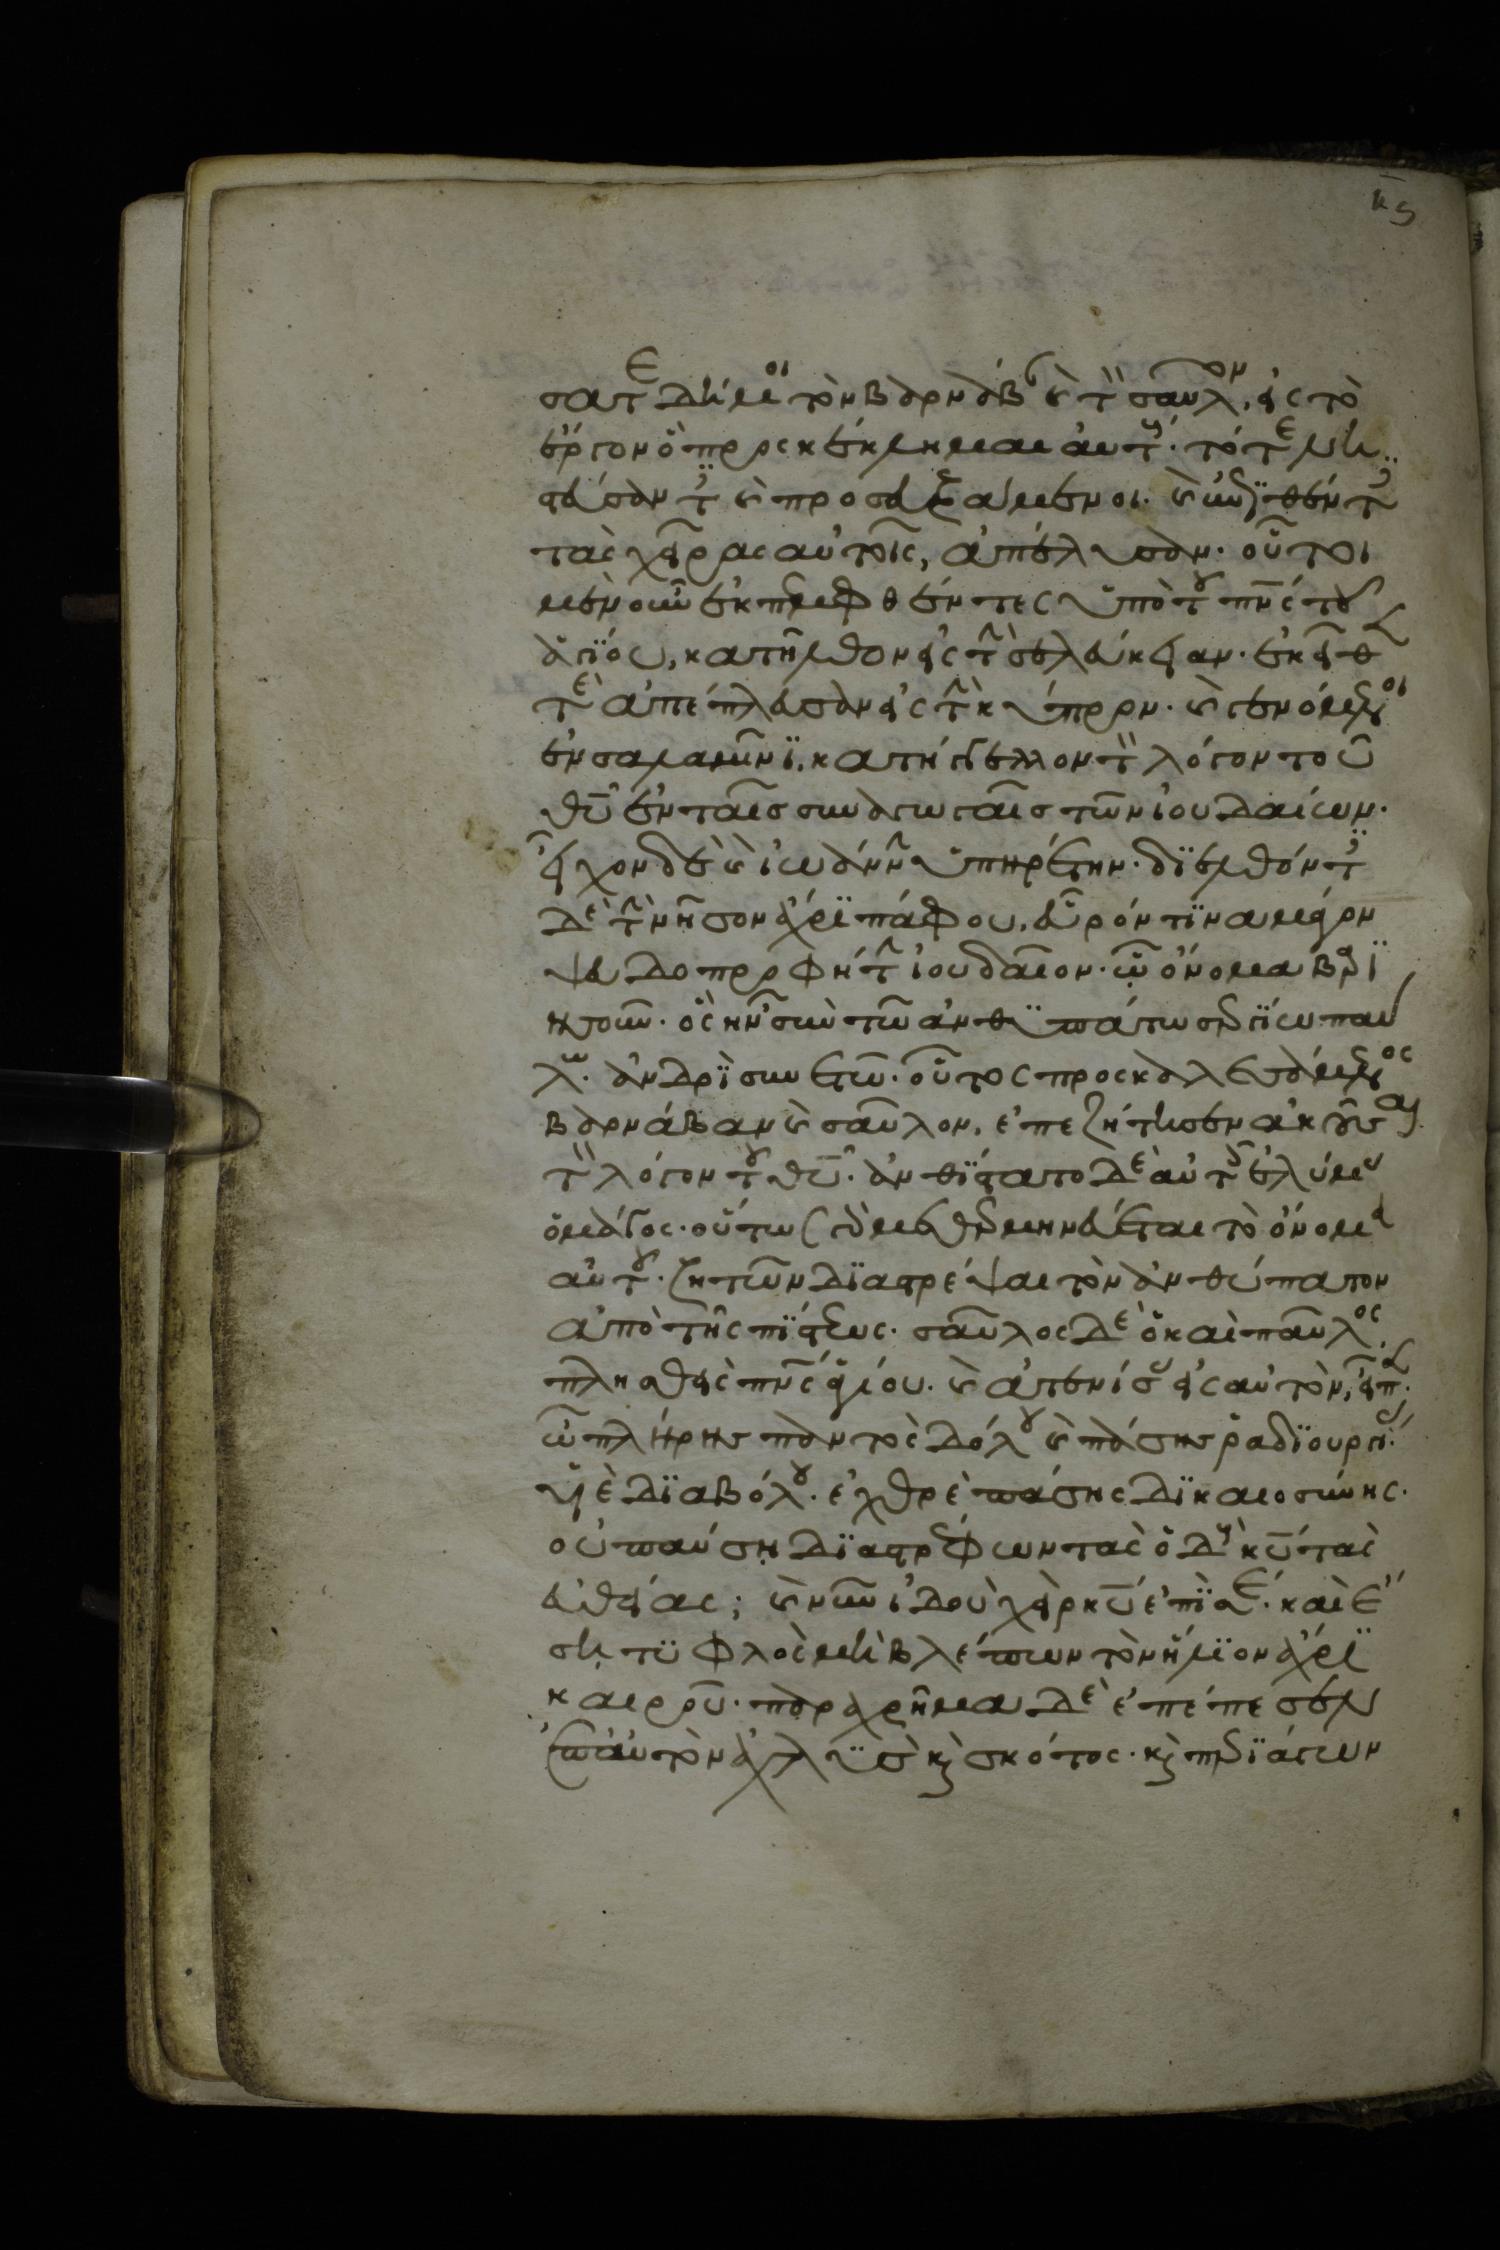 κϛ
σατε δή μοι τὸν βαρνάβ καὶ τὸν σαῦλον, εἰς τὸ
ἔργον ὃ προσκέκλημαι αὐτούς. τότε νη
στεύσαντες καὶ προσευξάμενοι. καὶ ἐπιθέντες
τὰς χεῖρας αὐτοῖς, ἀπέλυσαν. οὗτοι
μὲν οὖν ἐκπεμφθέντες ὑπὸ τοῦ πνς τοῦ
ἁγίου, κατῆλθον εἰς τὴν σελεύκειαν. ἐκεῖθεν
τὲ ἀπέπλευσαν εἰς τὴν κύπρον. καὶ γενόμενοι
ἐν σαλαμῖνι, κατήγγελλον τὸν λόγον τοῦ
θυ ἐν ταῖς συναγωγαῖς τῶν ἰουδαίων.
εἶχον δὲ καὶ ἰωάννην ὑπηρέτην. διελθόντες
δὲ τὴν νῆσον ἄχρι πάφου, εὗρόν τινα μάγον
ψευδοπροφήτην ἰουδαῖον. ᾧ ὄνομα βαρϊ
ησοῦν. ὃς ἦν σὺν τῶ ἀνθυπάτω σεργίω παύ
λω. ἀνδρὶ συνετῶ. οὗτος προσκαλεσάμενος
βαρνάβαν καὶ σαῦλον, ἐπεζήτησεν ἀκοῦσαι
τὸν λόγον τοῦ θυ. ἀνθίστατο δὲ αὐτοῖς ἐλύμας
ὁ μάγος. οὕτως γὰρ μεθερμηνεύεται τὸ ὄνομα
αὐτοῦ. ζητῶν διαστρέψαι τὸν ἀνθύπατον
ἀπὸ τῆς πίστεως. σαῦλος δὲ ὁ καὶ παῦλος,
πλησθεὶς πνς ἁγίου. καὶ ἀτενίσας εἰς αὐτὸν, εἶπεν.
ὦ πλήρης παντὸς δόλου καὶ πάσης ῥαδιουργίας.
υἱὲ διαβόλου. ἐχθρὲ πάσης δικαιοσύνης.
οὐ παύση διαστρέφων τὰς ὁδοὺς κυ τὰς
εὐθείας; καὶ νῦν ἰδοὺ χεὶρ κυ ἐπὶ σέ. καὶ ἔ
ση τυφλὸς μὴ βλέπων τὸν ἥλιον ἄχρι
καιροῦ. παραχρῆμα δὲ ἐπέπεσεν
ἐπ' αὐτὸν ἀχλὺς καὶ σκότος. καὶ περιάγων